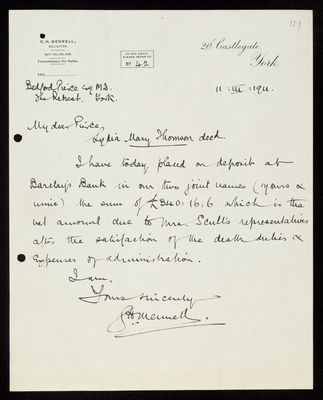 (29)
G. H. MENNELL,
SOLICITOR.
NAT. TEL. NO.
Commissioner for Oaths.
AND
IN ANY REPLY
PLEASE REFER TO
No 42
20, Castlegate,
York.
Bedford Pierce Esq M.D.
The Retreat. York.
11 : III : 1911.
My dear Pierce,
Lydia Mary Thomson decd.
I have today placed on deposit at
Barclay's Bank in our two joint names (yours &
mine) the sum of £340 : 16 : 6 which is the
net amount due to Mrs. Scull's representatives
after the satisfaction of the death duties &
expenses of administration.
I am,
Yours sincerely
GHMennell.